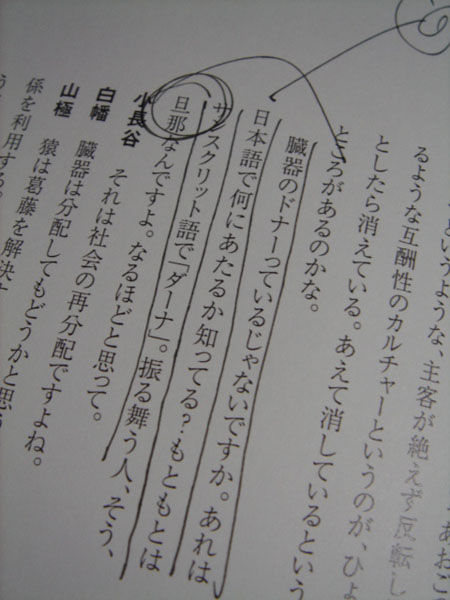 あおご
というような、主客が絶えず反転し
るような互酬性のカルチャーというのが、ひよ
としたら消えている。あえて消しているという
ところがあるのかな。
臓器のドナーっているじゃないですか。あれは
日本語で何にあたるか知ってる？もともとは
サンスクリット語で「ダーナ」。振る舞う人、そう、
旦那なんですよ。なるほどと思って。
小長谷　それは社会の再分配ですよね。
白幡　臓器は分配してもどうかと思
山極　猿は葛藤を解決す
係を利用する。